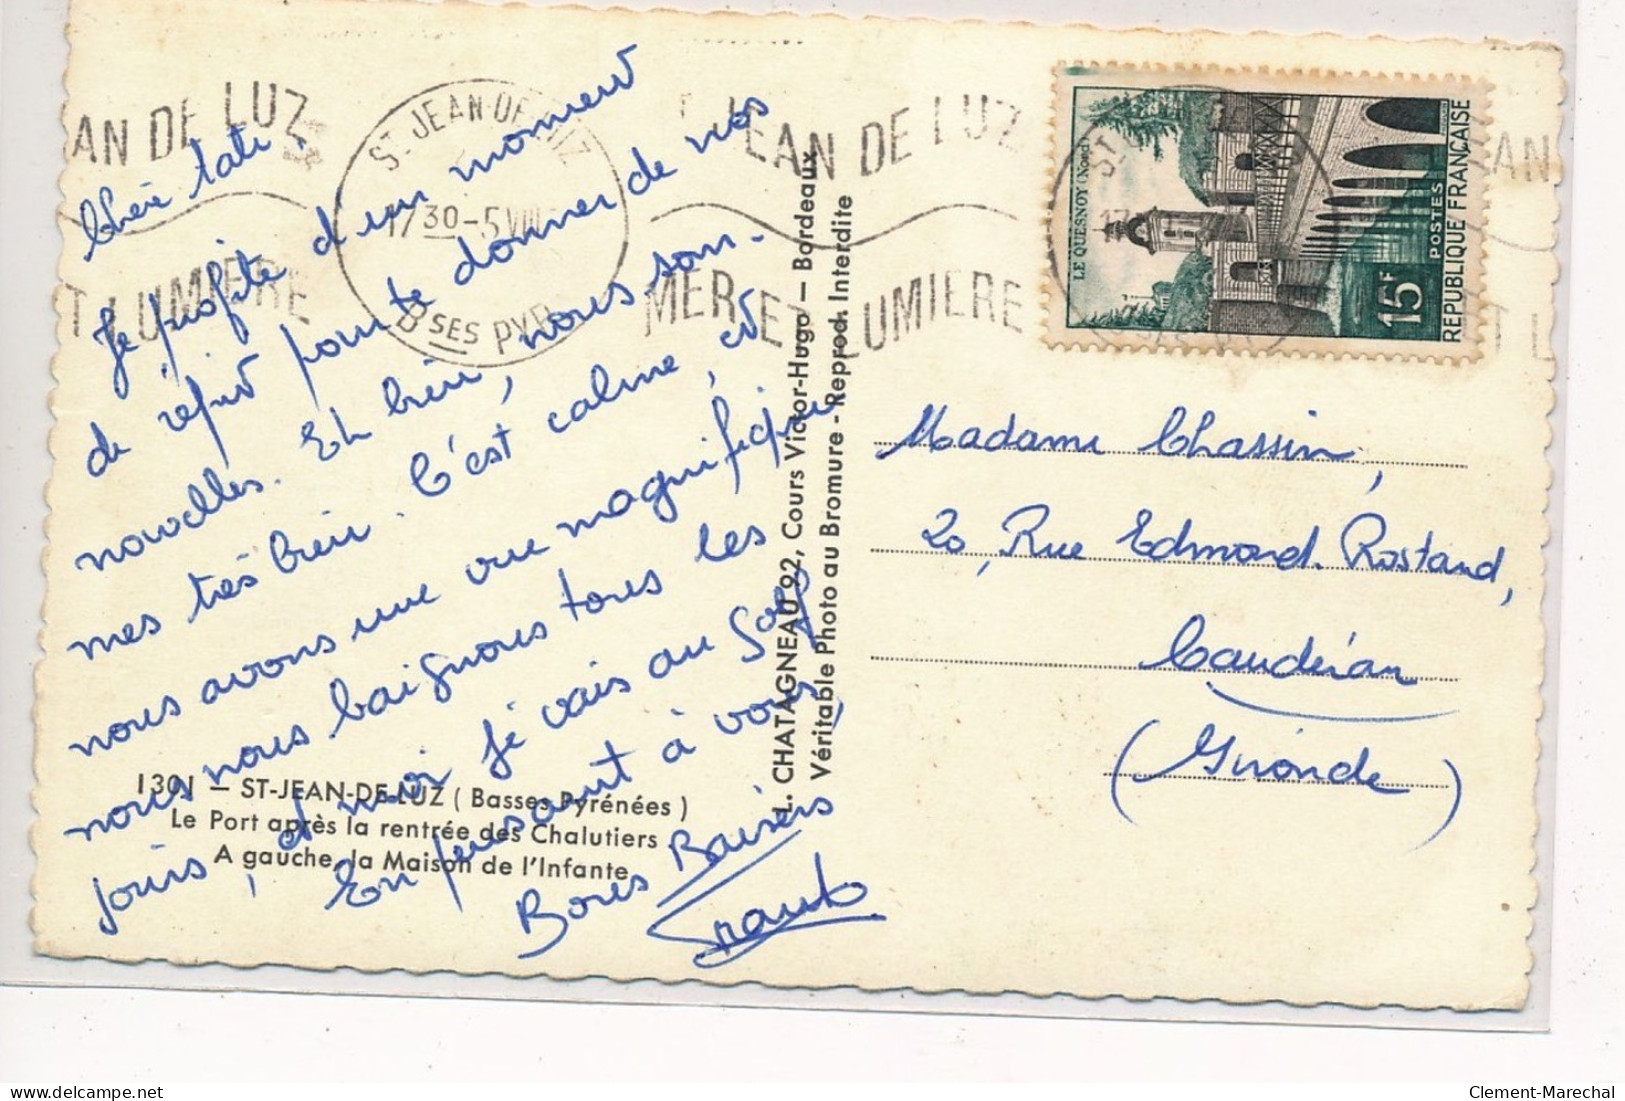 Chère tati,
Je profite d'un moment
de répit pour te donner de nos
nouvelles. Eh bien, nous som-
mes très bien. C'est calme, et
nous avons une vue magnifique
nous nous baignons tous les
jours, et moi je vais au Golf
En pensant à vous,
Bons Baisers
ST JEAN DE LUZ
17 30 - 5 VIII
BSES PYR.
ST JEAN DE LUZ
MER ET LUMIERE
AN DE LUZ
T LUMIERE
1301 — ST-JEAN-DE-LUZ (Basses Pyrénées)
Le Port après la rentrée des Chalutiers
A gauche, la Maison de l'Infante
L. CHATAGNEAU 92, Cours Victor-Hugo — Bordeaux
Véritable Photo au Bromure - Reprod. Interdite
LE QUESNOY (Nord)
15F
POSTES
REPUBLIQUE FRANÇAISE
Madame Chassin,
20, Rue Edmond. Rostand,
Caudéran
(Gironde)
Clement-Marechal